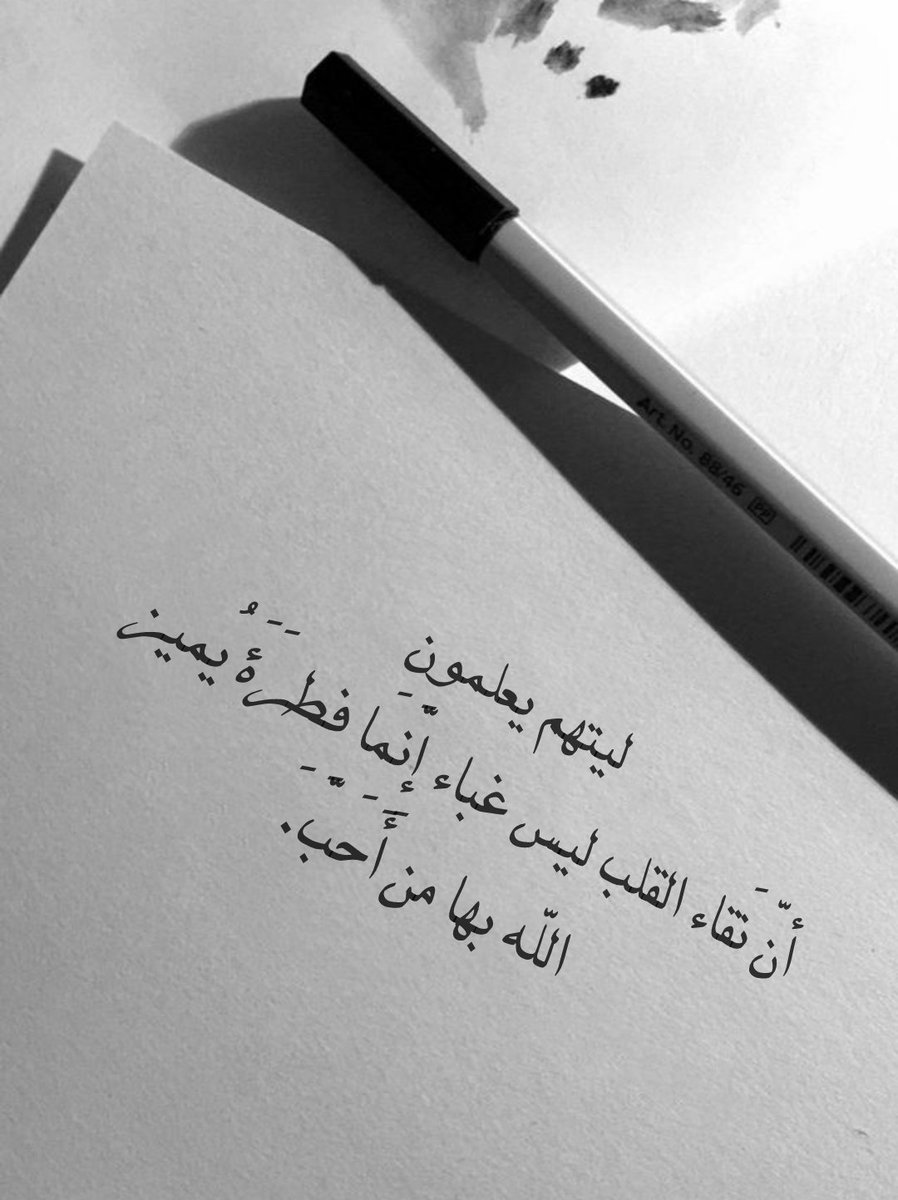 Art. No. 88/46 PP
ليتهم يعلمون
أنّ نقاء القلب ليس غباء إنَّما فطَرَةٌ يُميز
اللّه بها من أَحَبَّ.